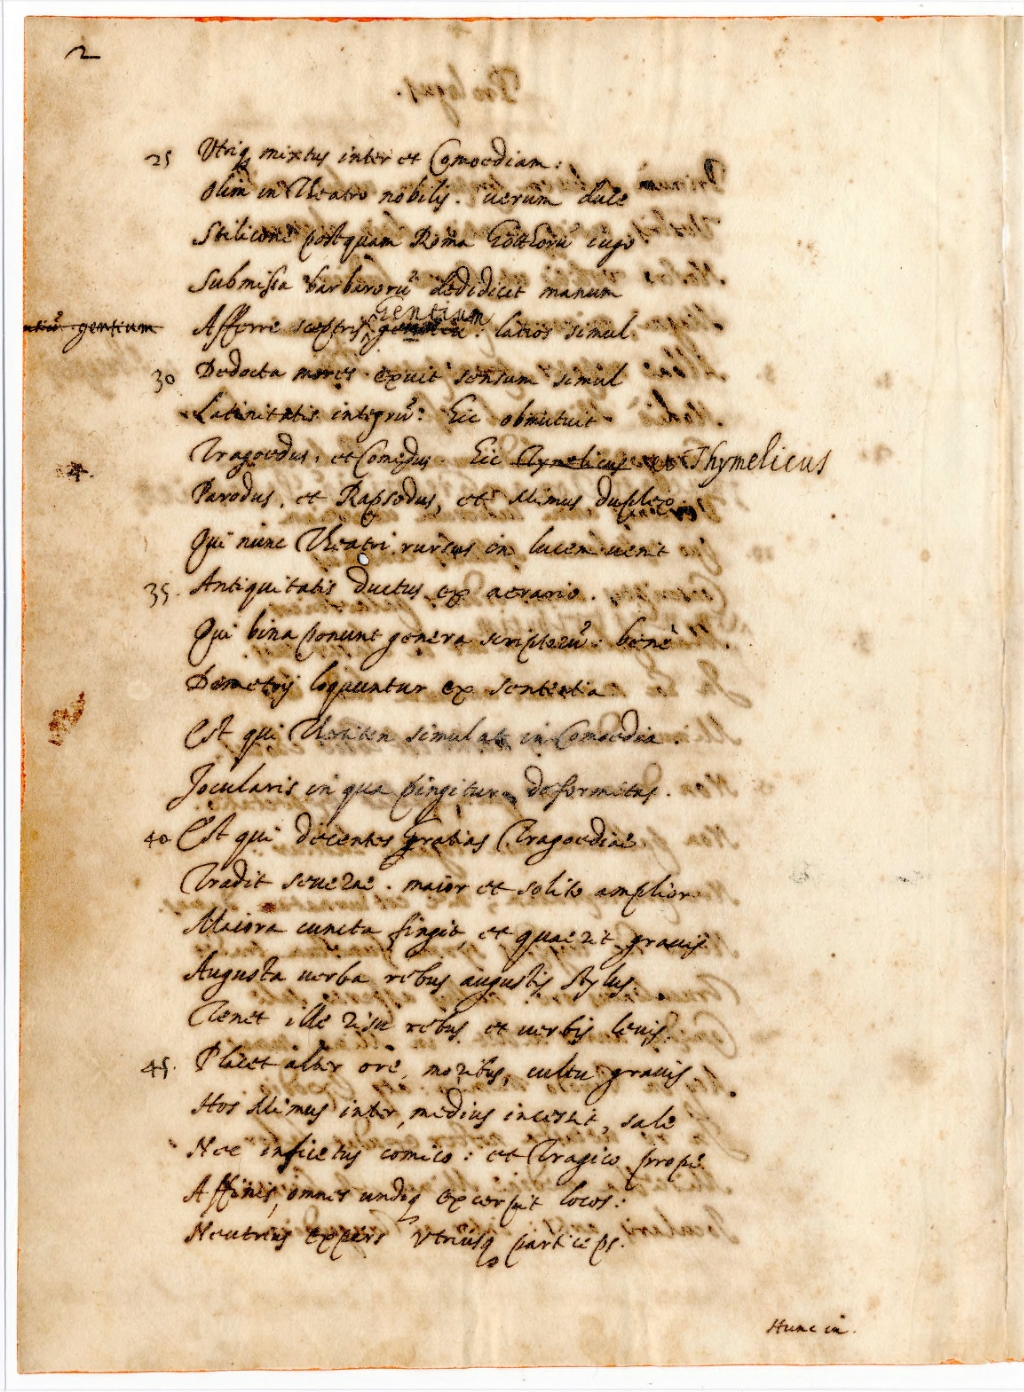 2
25 Vtriq mixtus inter et Comoediam:
Olim in Theatro nobilis. uerum duce
Stilicone postquam Roma Gotthorũ iugo
Submissa barbarorũ dedidicit manum
Gentium
gentium Afferre sceptris, latios simul
30 Dedocta mores exuit sensum simul
Latinitatis integrũ: hic obmutuit
Tragoedus, et Comoedus. hic Thymelicus Thymelicus
Parodus, et Rapsodus, et Mimus duplex
Qui nunc Theatri rursus in lucem uenit
35. Antiquitatis ductus ex aerario.
Qui bina ponunt genera scriptorũ: benè
Demetrij loquuntur ex sententia
Est qui simulat in Comoedia.
Jocularis in qua pingitur deformitas.
40 Est qui decentes Gratias Tragoediae
Tradit seuerae. maior et solito amplior
Maiora cuncta fingit, et quaerit grauis
Augusta uerba rebus augustis stylus.
Tenet ille risu rebus et uerbis leuis.
45. Placet alter ore, moribus, cultu grauis
Hos Mimus inter medius incessit, sale
Nec inficetus comico: et Tragico propè
Affinis, omnes undiq excerpit locos:
Neutrius expers vtriusq particeps.
Hunc in.